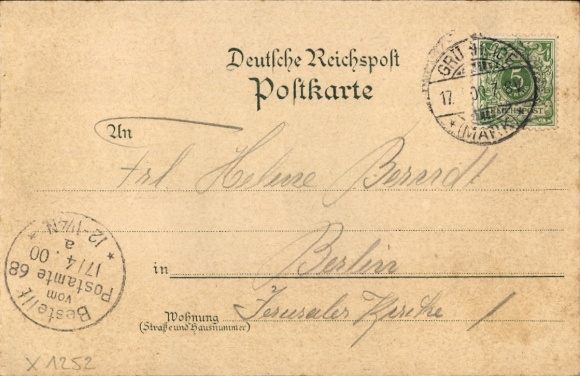 Deutsche Reichspost
Postkarte
An
Frl Helene Berndt
in Berlin
Wohnung
(Straße und Hausnummer)
Jerusaler Kirche 1
(MARK)
17.
5
Bestellt
vom
Postamte 68
17/4.00
a
12-1¼N
X1252